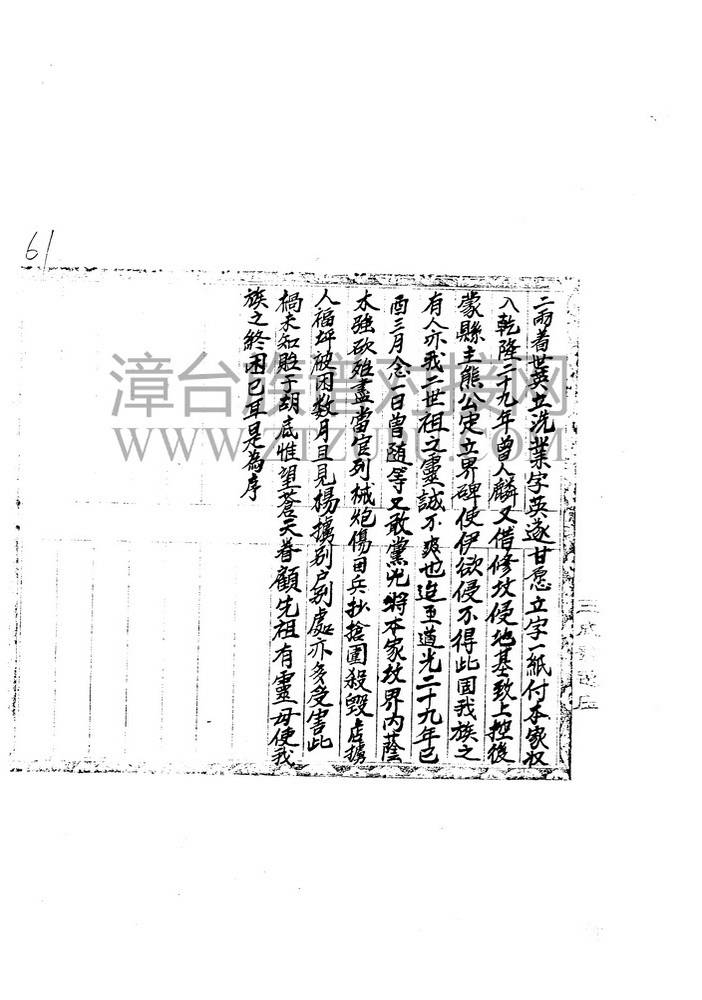 61
二両着世英立洗業字英遂甘愿立字一紙付本家収
入乾隆二十九年曾人麟又借修坟侵地基致上控後
蒙縣主熊公定立界碑使伊欲侵不得此固我族之
有人亦我二世祖之靈誠不爽也迨至道光二十九年己
酉三月念一日曾随等又敢黨兇将本家坟界内蔭
木強砍殆盡當官列械炮傷田兵抄搶圍殺毀店擄
人福坪被困数月且見楊擄别户别處亦多受害此
禍未知貽于胡底惟望蒼天眷顧先祖有靈毋使我
族之終困已耳是為序
漳台族谱对接网
WWW.ZTZUPU.COM